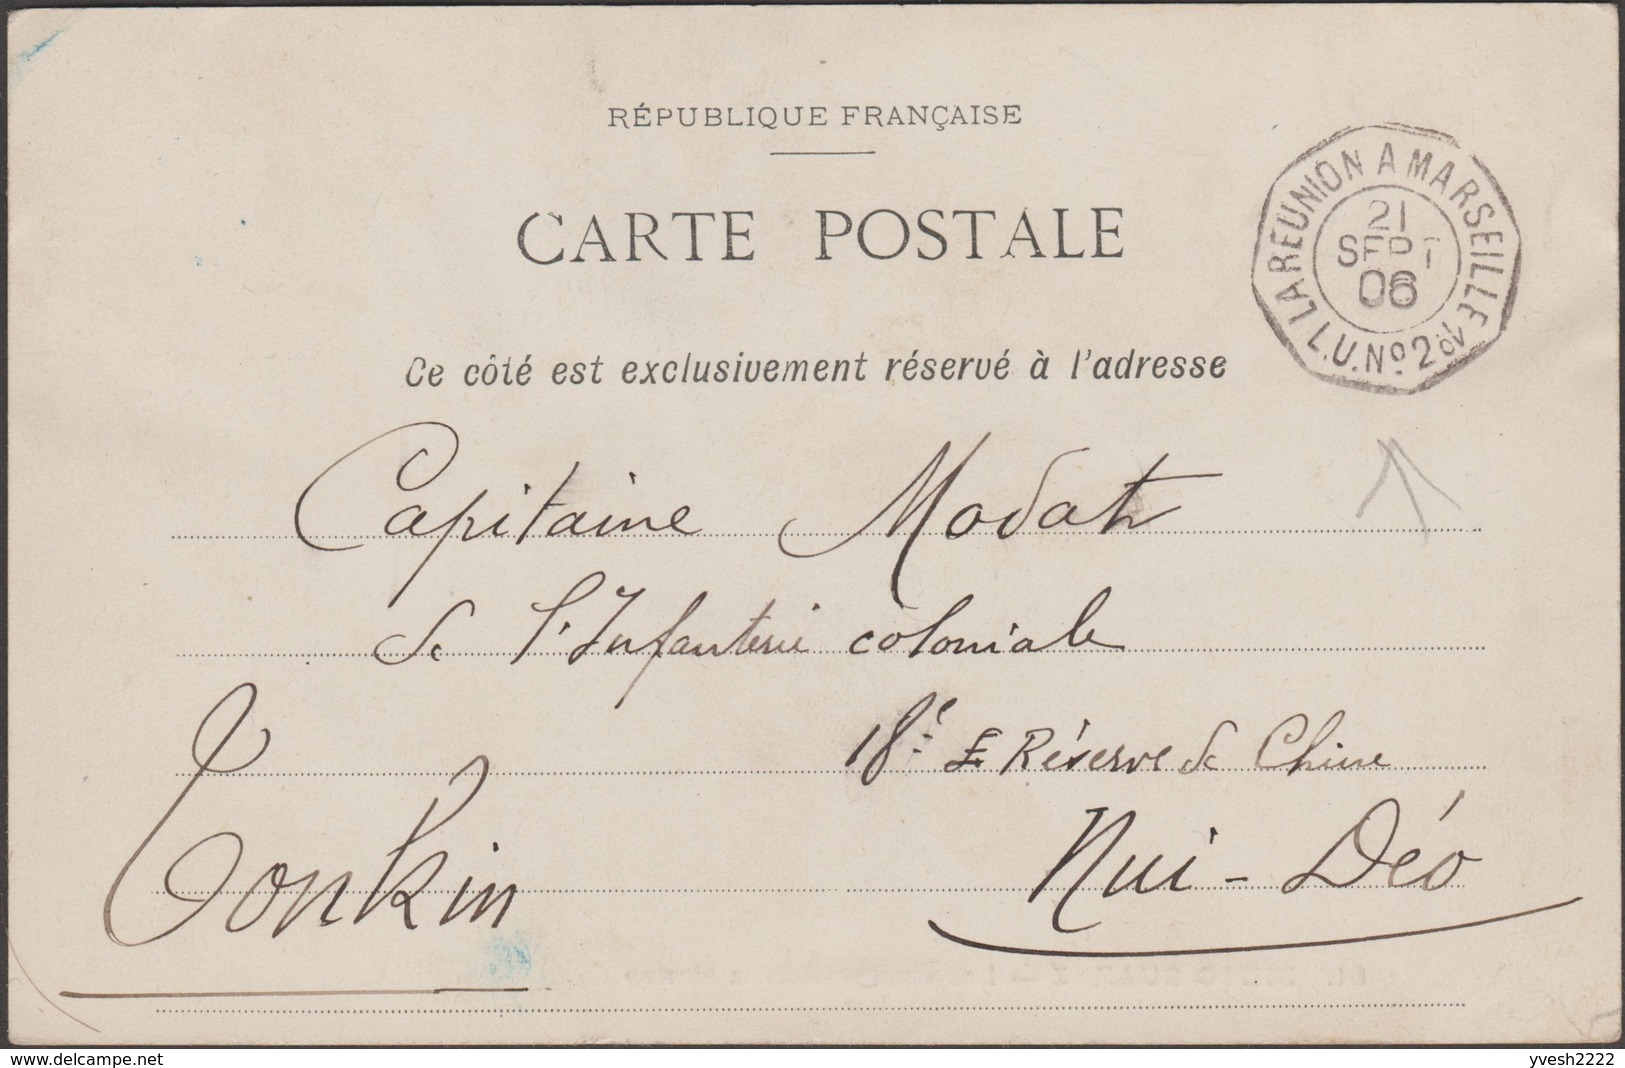 RÉPUBLIQUE FRANÇAISE
CARTE POSTALE
LA REUNION A MARSEILLE
21
SEPT
06
L.U. Nº 2
Ce côté est exclusivement réservé à l'adresse
Capitaine Modat
de l'Infanterie coloniale
18e Réserve de Chine
Tonkin
Nui-Déo
www.delcampe.net
yvesh2222